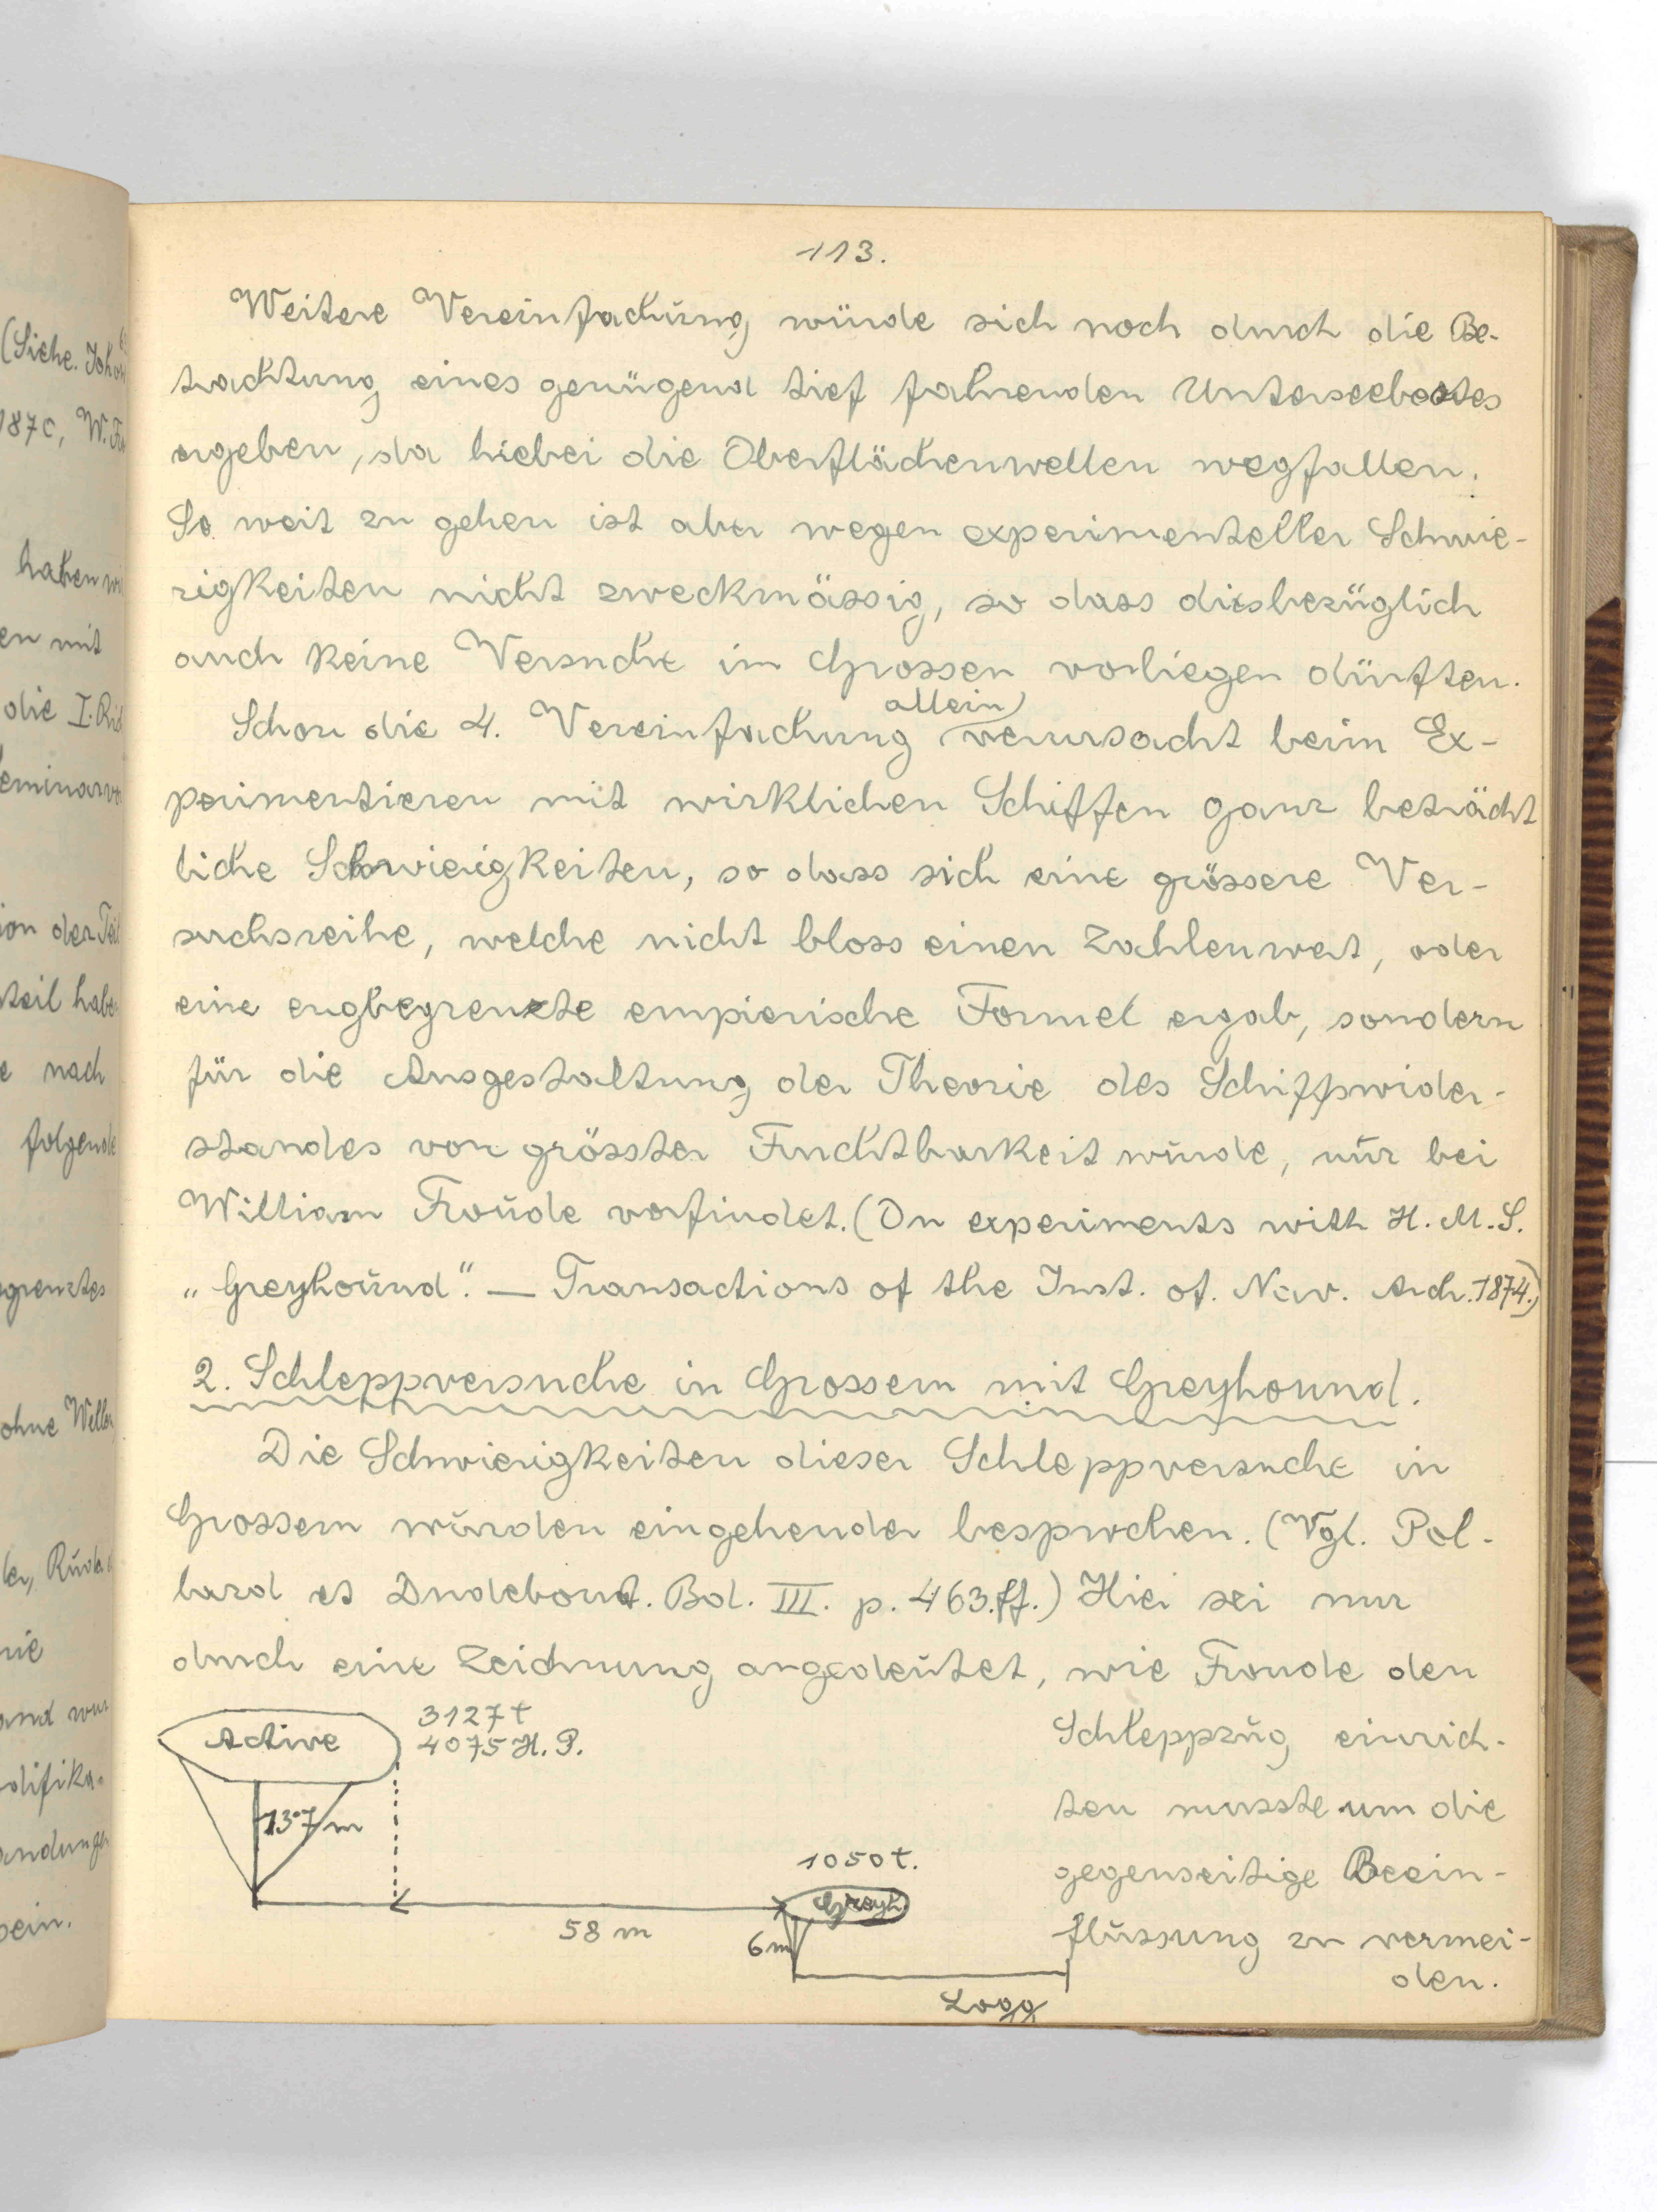 113.
Weitere Vereinfachung würde sich noch durch die Be-
trachtung eines genügend tief fahrenden Unterseebootes
ergeben, da hiebei die Oberflächenwellen wegfallen.
So weit zu gehen ist aber wegen experimenteller Schwie-
rigkeiten nicht zweckmässig, so dass diesbezüglich
auch keine Versuche im Grossen vorliegen dürften.
allein
Schon die 4. Vereinfachung verursacht beim Ex-
perimentieren mit wirklichen Schiffen ganz beträcht
liche Schwierigkeiten, so dass sich eine grössere Ver-
suchsreihe, welche nicht bloss einen Zahlenwert, oder
eine engbegrenzte empierische Formel ergab, sondern
für die Ausgestaltung der Theorie des Schiffswider-
standes von grösster Fruchtbarkeit würde, nur bei
William Froude vorfindet. (On experiments with H. M. S.
„Greyhound". — Transactions of the Inst. of. Nav. Arch. 1874.)
2. Schleppversuche in Grossem mit Greyhound.
Die Schwierigkeiten dieser Schleppversuche in
Grossem würden eingehender besprochen. (Vgl. Pol-
lard et Dudebout. Bd. III. p. 463.ff.) Hier sei nur
durch eine Zeichnung angedeutet, wie Froude den
Schleppzug einrich-
ten musste um die
gegenseitige Beein-
flussung zu vermei-
den.
Active
3127 t
4075 H. P.
13·7 m
58 m
1050 t.
Greyh.
6 m
Logg
(Siehe. Joh
1870, W. Fr
haben wi
en mit
die I. Ri
eminarvo
ion der Teil
teil habe
e nach
folgende
egrenztes
ohne Wellen
der, Rude
nie
and wur
odifika-
andungen
sein.